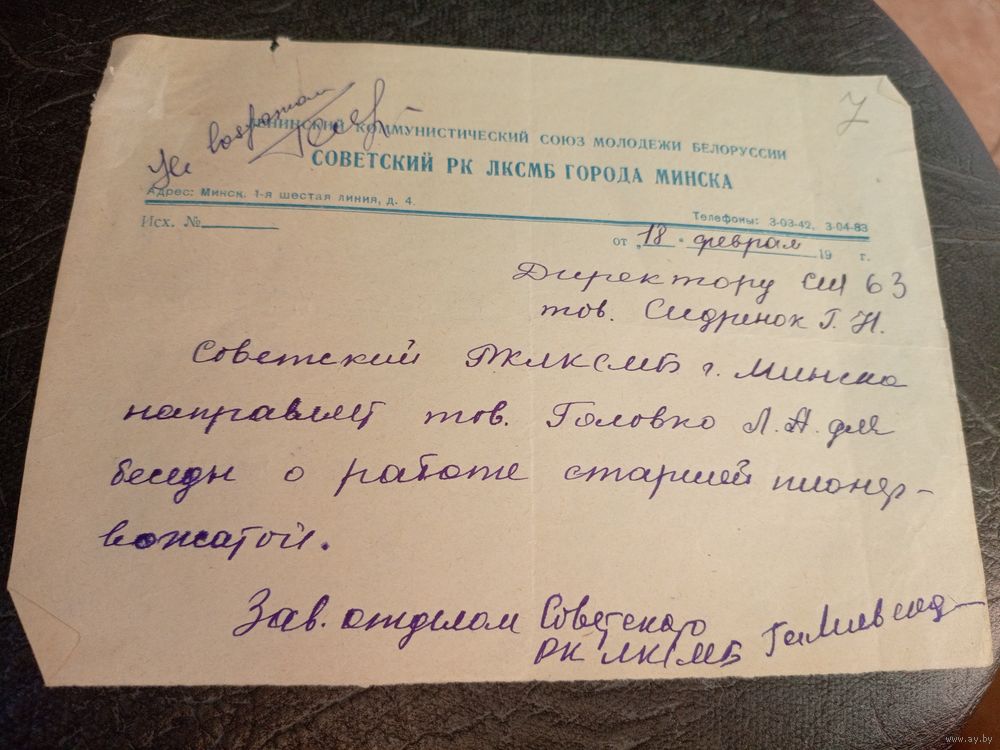 Не возражаю
7
ЛЕНИНСКИЙ КОММУНИСТИЧЕСКИЙ СОЮЗ МОЛОДЕЖИ БЕЛОРУССИИ
СОВЕТСКИЙ РК ЛКСМБ ГОРОДА МИНСКА
Адрес: Минск. 1-я шестая линия, д. 4.
Телефоны: 3-03-42, 3-04-83
Исх. №
от „18" февраля 19 г.
Директору СШ 63
тов. Сидренок Г. Н.
Советский РКЛКСМБ г. Минска
направляет тов. Головко Л. А. для
беседы о работе старшей пионер-
вожатой.
Зав. отделом Советского
РК ЛКСМБ
www.ay.by